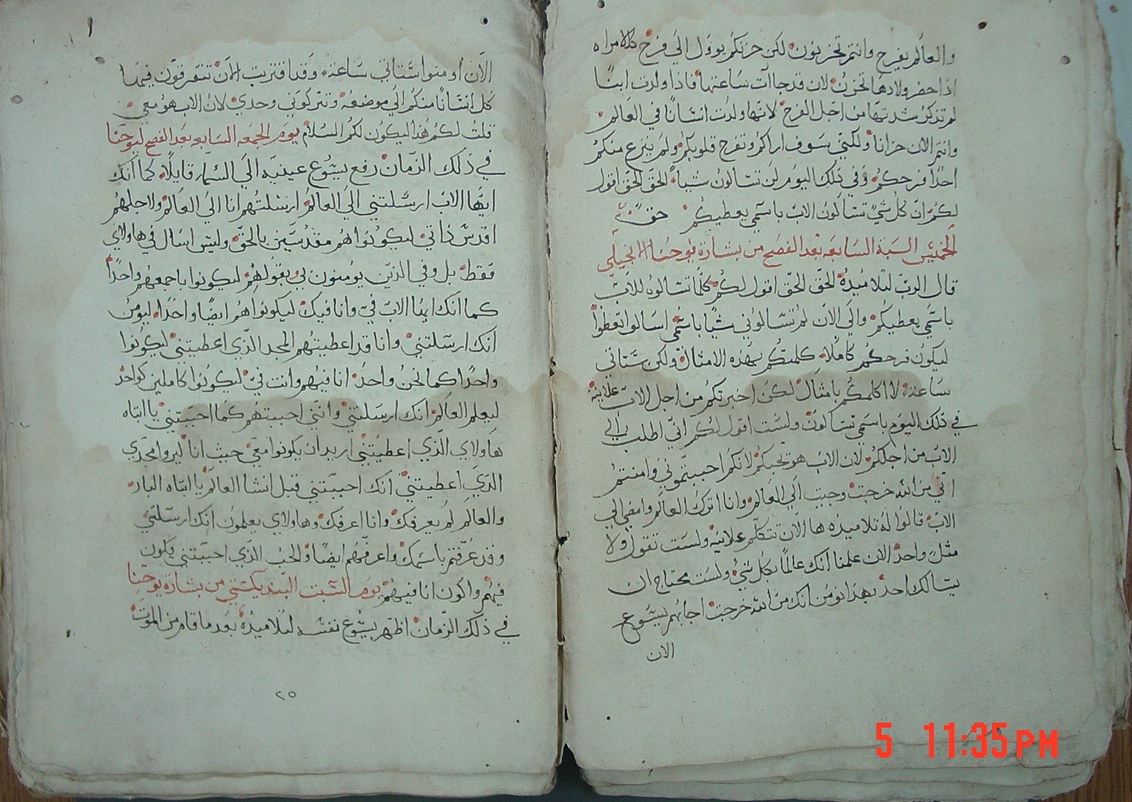 والعالم يفرح وانتم تحزنون لكن حزنكم يوول الي فرح كالامراه
اذا حضر ولادها تحزن لان قد جات ساعتها فاذا ولدت ابنا
لم تذكر شدتها من اجل الفرح لانها ولدت انسانا في العالم
وانتم الان حزانا ولكني سوف اراكم وتفرح قلوبكم ولم ينزع منكم
احد فرحكم وفي ذلك اليوم لن تسالون شيا الحق الحق اقول
لكم ان كل شي تسالون الاب باسمي يعطيكم
الخميس السبة السابعه بعد الفصح من بشارة يوحنا الانجيلي
قال الرب لتلاميذه الحق الحق اقول لكم كلما تسالوه للاب
باسمي يعطيكم والي الان لم تسالوني شيا باسمي اسالوا تعطوا
ليكون فرحكم كاملا كلمتكم بهذه الامثال ولكن ستاتي
ساعة لا اكلمكم بامثال لكن اخبرتكم من اجل الاب علانية
في ذلك اليوم باسمي تسالون ولست اقول لكم اني اطلب الي
الاب من اجلكم لان الاب هو يحبكم لانكم احببتموني وامنتم
اني من الله خرجت وجيت الي العالم وانا اترك العالم وامضي الي
الاب قالوا له تلاميذه ها الان تتكلم علانية ولست تقول ولا
مثل واحد الان علمنا انك عالما بكل شي ولست محتاج ان
يسالك احد بهذا نومن انك من الله خرجت اجابهم يسوع
الان
الان اومنوا ستاتي ساعة وقد اقتربت الان تتفرقون فيها
كل انسانا منكم الي موضعه وتتركوني وحدي لان الاب هو معي
قلت لكم هذا ليكون لكم السلام يوم الجمعه السابعه بعد الفصح ليوحنا
في ذلك الزمان رفع يسوع عينيه الي السما قايلا كما انك
ايها الاب ارسلتني الي العالم ارسلتهم انا الي العالم ولاجلهم
اقدس ذاتي ليكونوا هم مقدسين بالحق وليس اسال في هاولاي
فقط بل وفي الذين يومنون بي بقولهم ليكونوا باجمعهم واحدا
كما انك ايها الاب في وانا فيك ليكونوا هم ايضا واحدا ليومن
انك ارسلتني وانا قد اعطيتهم المجد الذي اعطيتني ليكونوا
واحدا كما نحن واحد انا فيهم وانت في ليكونوا كاملين كواحد
ليعلم العالم انك ارسلتني وانني احببتهم كما احببتني يا ابتاه
هاولاي الذي اعطيتني اريد ان يكونوا معي حيت انا ليروا مجدي
الذي اعطيتني انك احببتني قبل انشا العالم يا ابتاه البار
والعالم لم يعرفك وانا اعرفك وهاولاي يعلمون انك ارسلتني
وقد عرفتهم باسمك واعرفهم ايضا والحب الذي احببتني يكون
فيهم واكون انا فيهم يوم السبت البنديكستي من بشارة يوحنا
في ذلك الزمان اظهر يسوع نفسه لتلاميذه بعد ما قام من الموت
٢٥
5 11:35 PM